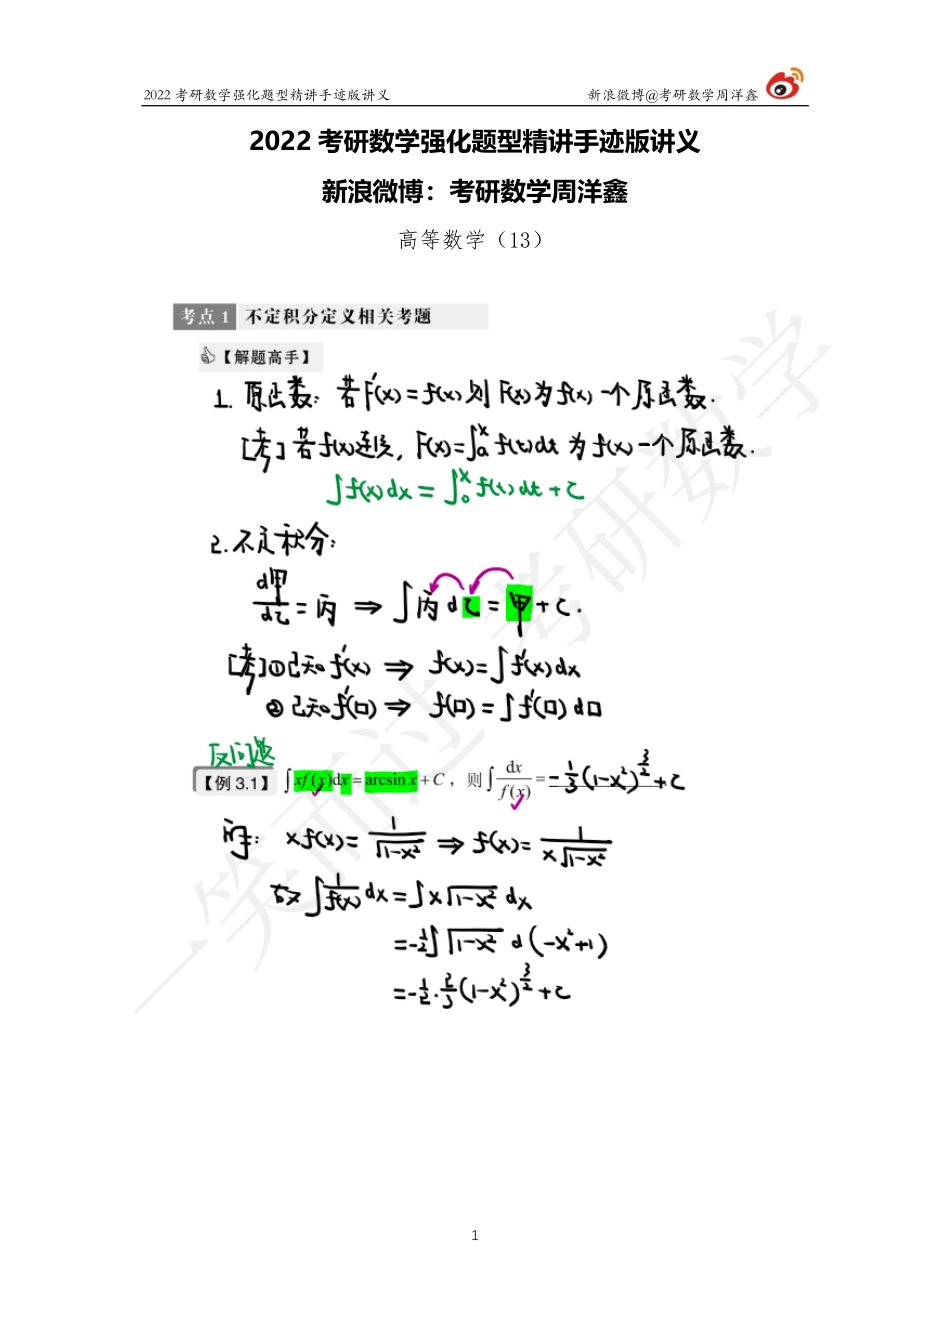 2022 考研数学强化题型精讲手迹版讲义 新浪微博@考研数学周洋鑫
2022 考研数学强化题型精讲手迹版讲义
新浪微博：考研数学周洋鑫
高等数学（13）
考点 1 不定积分定义相关考题
【解题高手】
1. 原函数：若F'(x)=f(x)则F(x)为f(x)一个原函数.
[考] 若f(x)连续，F(x)=∫ₐˣ f(t)dt 为f(x)一个原函数.
∫f(x)dx = ∫₀ˣ f(t)dt + C
2. 不定积分：
d甲/d乙 = 丙 ⇒ ∫丙d乙 = 甲 + C.
[考] ① 已知f'(x) ⇒ f(x)=∫f'(x)dx
② 已知f'(口) ⇒ f(口)=∫f'(口)d口
反问题
【例 3.1】 ∫xf(x)dx = arcsin x + C，则∫dx/f(x) = -1/3(1-x²)^(3/2)+C
解：xf(x)=1/√(1-x²) ⇒ f(x)=1/(x√(1-x²))
故∫1/f(x) dx = ∫x√(1-x²) dx
=-1/2∫√(1-x²) d(-x²+1)
=-1/2·2/3(1-x²)^(3/2)+C
一笑而过 考研数学
1